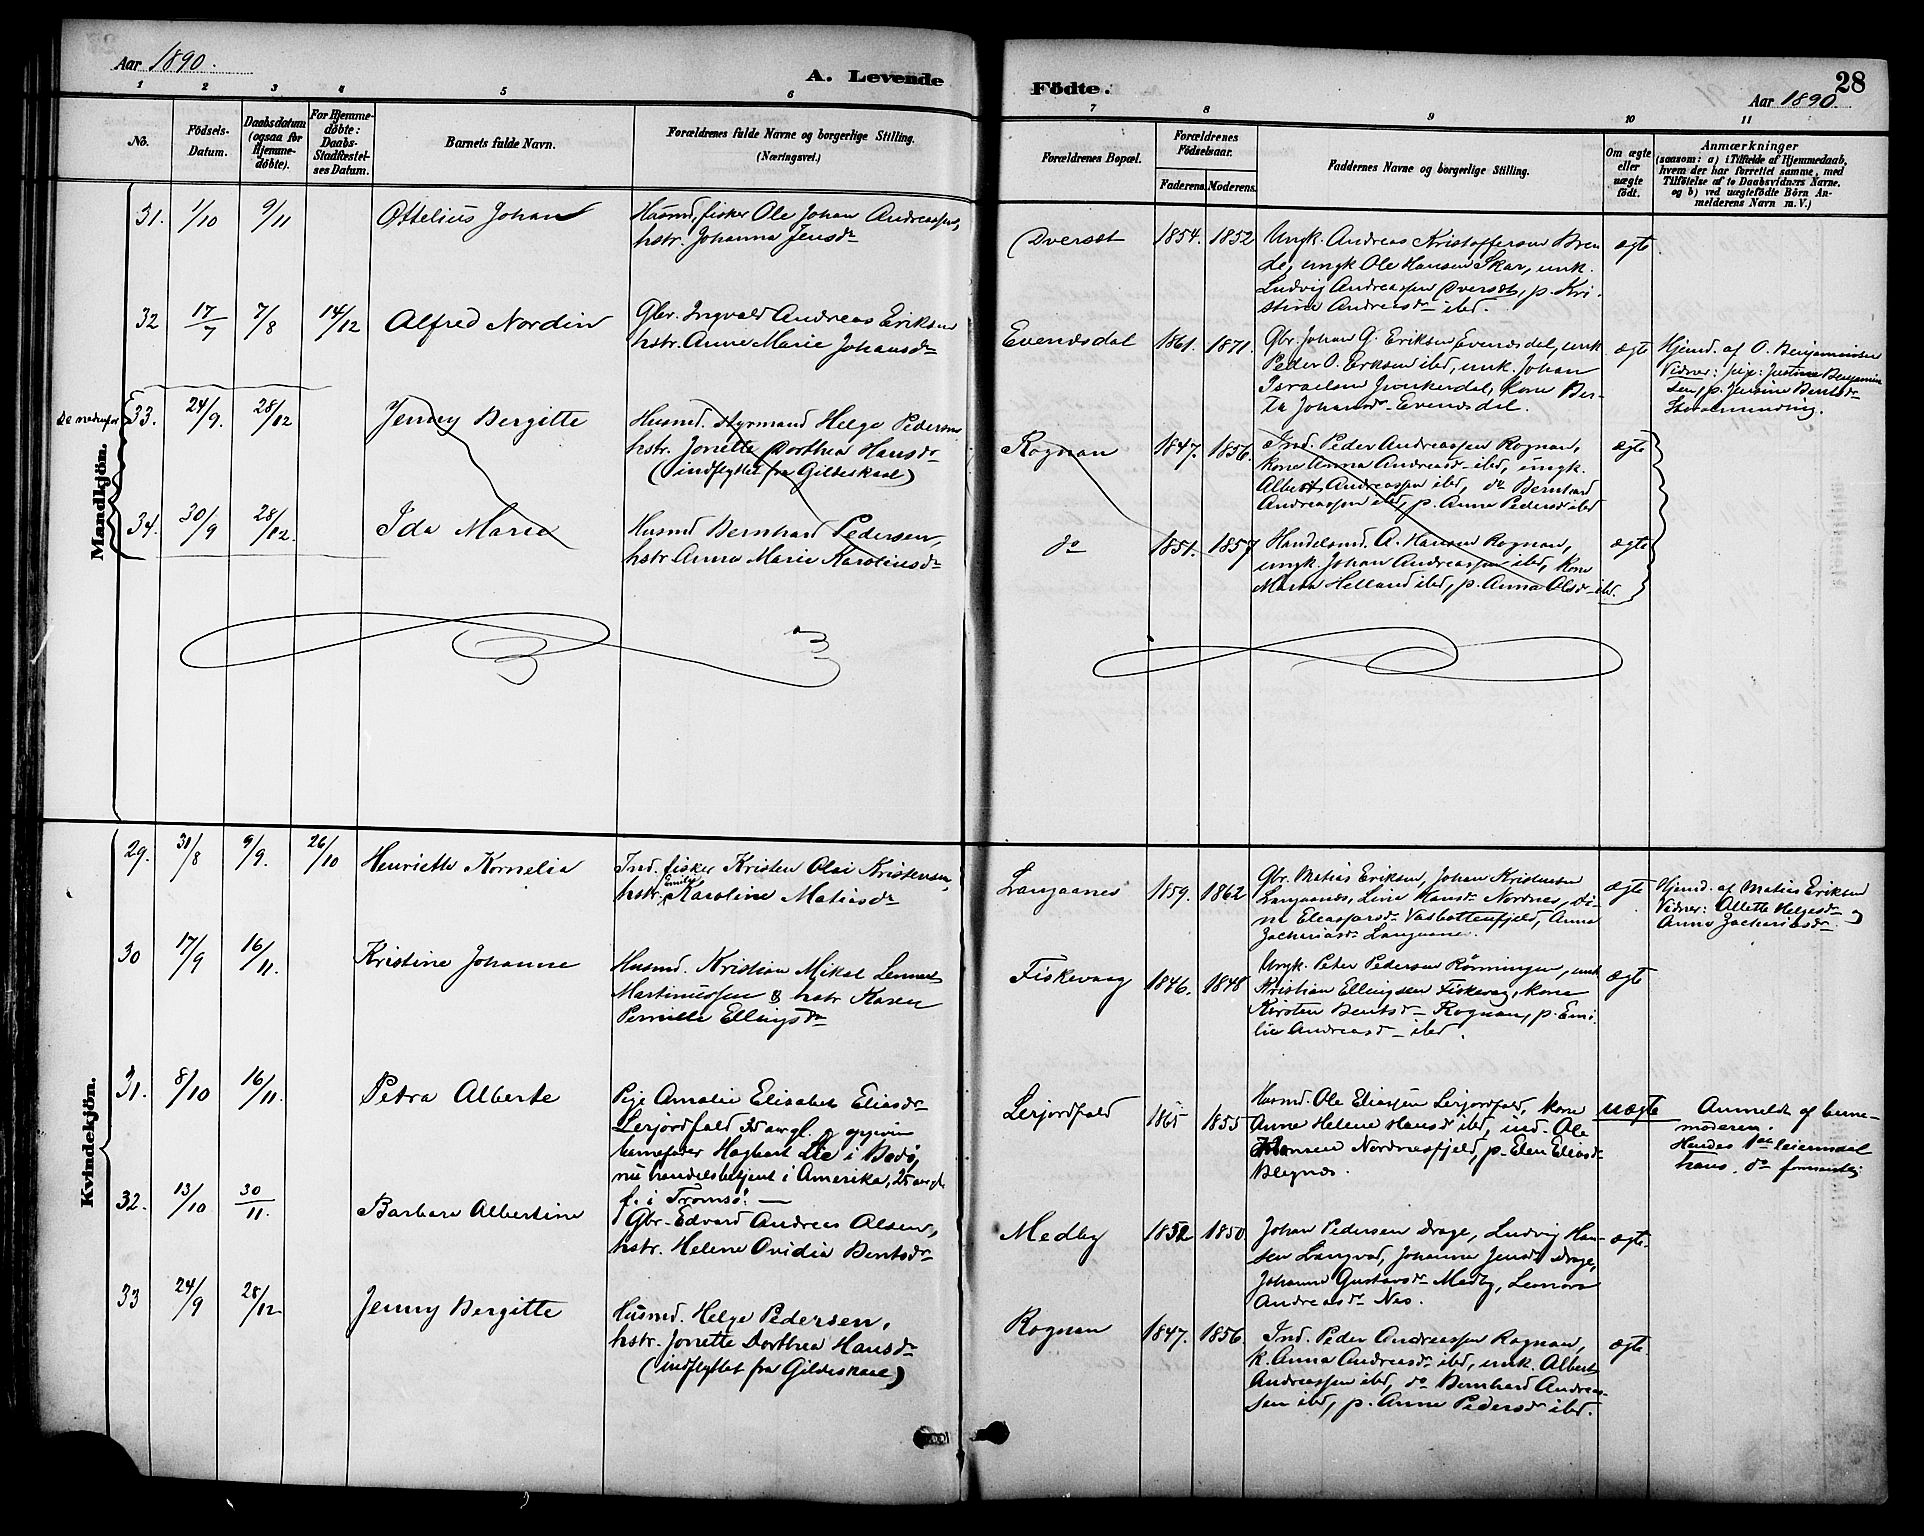 Aar 1890.
A. Levende
Födte.
28
Aar 1890.
1 2 3 4 5 6 7 8 9 10 11
No.
Födsels-
Datum.
Daabsdatum
(ogsaa for
Hjemme-
döbte).
For Hjemme-
döbte:
Daabs-
Stadfæstel-
ses Datum.
Barnets fulde Navn.
Forældrenes fulde Navne og borgerlige Stilling.
(Næringsvei.)
Forældrenes Bopæl.
Forældrenes
Födselsaar.
Faderens. Moderens.
Faddernes Navne og borgerlige Stilling.
Om ægte
eller
uægte
födt.
Anmærkninger
(saasom: a) i Tilfælde af Hjemmedaab,
hvem der har forrettet samme, med
Tilföielse af to Daabsvidners Navne,
og b) ved uægtefödte Börn An-
melderens Navn m. V.)
Mandkjön.
31. 1/10 9/11 Ottelius Johan
Husmd, fisker Ole Johan Andreassen,
hstr. Johanna Jensdr
Overset 1854. 1852
Ungk. Andreas Kristoffersen Bren-
de, ungk Ole Hansen Skar, unk.
Ludvig Andreassen Overset, p. Kri-
stine Andreasdr ibd.
ægte
32 17/7 7/8 14/12 Alfred Nordin
Gbr. Ingvald Andreas Eriksen
hstr. Anne Marie Johansdr
Evensdal 1861. 1871.
Gbr. Johan G. Eriksen Evensdal, unk
Peder O. Eriksen ibd, unk. Johan
Israelsen Junkerdal, kone Ber-
ta Johansdr Evensdal.
ægte
Hjemd. af O. Benjaminsen
Vidner: pige: Justine Benjamin
sen, p. Jensine Bentsdr
Storalmending.
De nedenfor
33. 24/9. 28/12 Jenny Bergitte
Husmd. Styrmand Helge Pedersen
hstr. Jonette Dorthea Hansdr
(indflyttet fra Gildeskaal)
Rognan 1847. 1856.
Ind. Peder Andreassen Rognan,
kone Anna Andreasdr ibd, ungk.
Albert Andreassen ibd, do Bernhard
Andreassen ibd, p. Anne Pedersdr ibd
ægte
34. 30/9 28/12. Ida Marie
Husmd Bernhard Pedersen,
hstr Anne Marie Karolinsdr
do 1851. 1857
Handelsmd. A. Hansen Rognan,
ungk. Johan Andreassen ibd, kone
Marta Helland ibd, p. Anna Olsdr ibd.
ægte
Kvindekjön.
29. 31/8 9/9. 26/10 Henriette Kornelia
Ind. fisker Kristen Olai Kristensen,
hstr. Emilie Karoline Matiasdr
Langaanes 1859. 1862
Gbr. Matias Eriksen, Johan Kristensen
Langaanes, Line Hansdr Nordnes, Di-
na Eleassardr Vasbottenfjeld, Anna
Zachariasdr Langaanes.
ægte
Hjemd. af Matias Eriksen
Vidner: Allette Helgesdr og
Anna Zachariasdr
30 17/9 16/11. Kristine Johanne
Husmd. Kristian Mikal Lennert
Martinussen & hstr Karen
Pernille Ellingsdr
Fiskevaag 1846. 1848
Ungk. Peter Pedersen Rönningen, unk
Kristian Ellingsen Fiskevag, kone
Kirsten Bentsdr Rognan, p. Emi-
lie Andreasdr ibd.
ægte
31. 8/10 16/11. Petra Alberte
Pige Amalie Elisabet Eliasdr
Lerjordfald 35 år gl. & opgiven
barnefader Hagbart Lie i Bodö,
nu handelsbetjent i Amerika, 25 år gl
f. i Tromsö.
Lerjordfald 1865 1855
Husmd. Ole Eliassen Lerjordfald, kone
Anne Helene Hansdr ibd, ind. Ole
Hansen Nordnesfjeld, p. Elen Eliasdr
Megnes.
uægte
Anmeldt af barne-
moderen.
Hendes 1ste leiermaal
hans do formentlig
32. 13/10 30/11. Barbara Albertine
Gbr. Edvard Andreas Olsen,
hstr. Helene Ovidia Bentsdr
Medby 1852 1850
Johan Pedersen Drage, Ludvig Han-
sen Langvad, Johanna Jensdr Drage,
Johanna Gustavsdr Medby, Leonora
Andreasdr Nes.
ægte.
33 24/9 28/12. Jenny Bergitte
Husmd. Helge Pedersen,
hstr. Jonette Dorthea Hansdr
(indflyttet fra Gildeskaal)
Rognan 1847. 1856
Ind. Peder Andreassen Rognan,
k. Anna Andreasdr ibd, unk. Albert
Andreassen ibd, do Bernhard Andreas-
sen ibd, p. Anne Pedersdr ibd.
ægte.